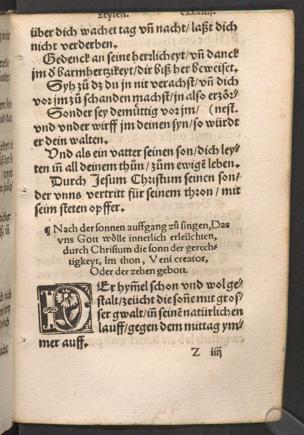 zeyten. cxxiiij.
über dich wachet tag vn̄ nacht/laßt dich
nicht verderben.
Gedenck an seine herrlicheyt/vn̄ danck
jm ð barmhertzikeyt/dir biß her beweiset.
Syh zů dz du jn nit verachst/vn̄ dich
vor jm zů schanden machst/jn also erzör/
Sonder sey demüttig vor jm/ (nest.
vnd vnder wirff jm deinen syn/so würdt
er dein walten.
Vnd als ein vatter seinen son/dich ley/
ten in̄ all deinem thůn/zům ewigē leben.
Durch Jesum Christum seinen son/
der vnns vertritt für seinem thron/mit
seim steten opffer.
¶ Nach der sonnen auffgang zů singen,Das
vns Gott wölle innerlich erleüchten,
durch Christum die sonn der gerech-
tigkeyt, Im thon, Veni creator,
Oder der zehen gebott.
DEr hym̄el schon vnd wol ge/
stalt/zeücht die son̄e mit gros/
ser gwalt/in̄ seinē natürlichen
lauff/gegen dem mittag ym/
mer auff.
Z iiij